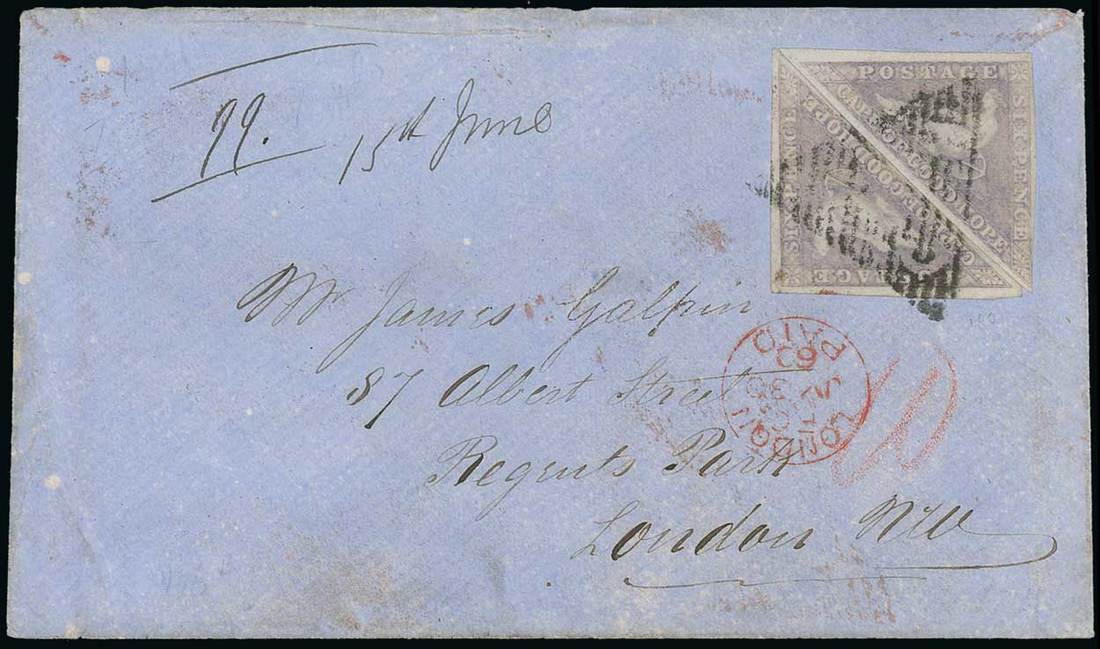 99. 15th June
POSTAGE
SIXPENCE
CAPE OF GOOD HOPE
CAPE OF GOOD HOPE
SIXPENCE
POSTAGE
Mr James Galpin
87 Albert Street
Regents Park
London NW
LONDON
PAID